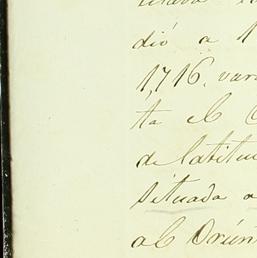 dió a 1
1,716. var
ta el
de latitu
situada a
al Orien